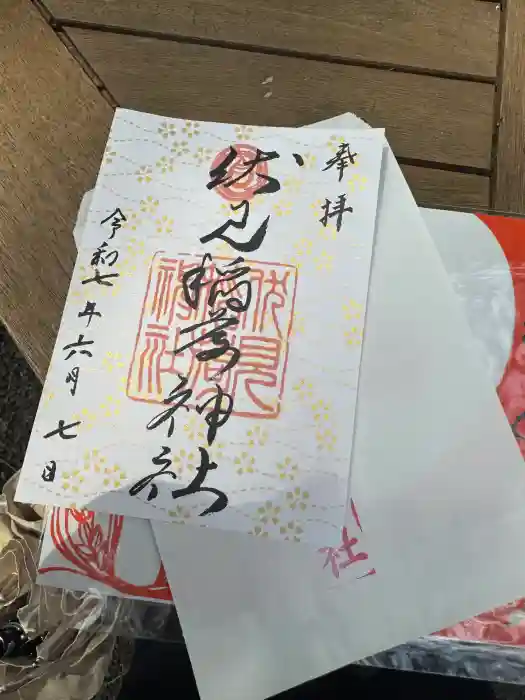 奉拝
伏見稲荷神社
伏見稲荷神社
令和七年六月七日
社